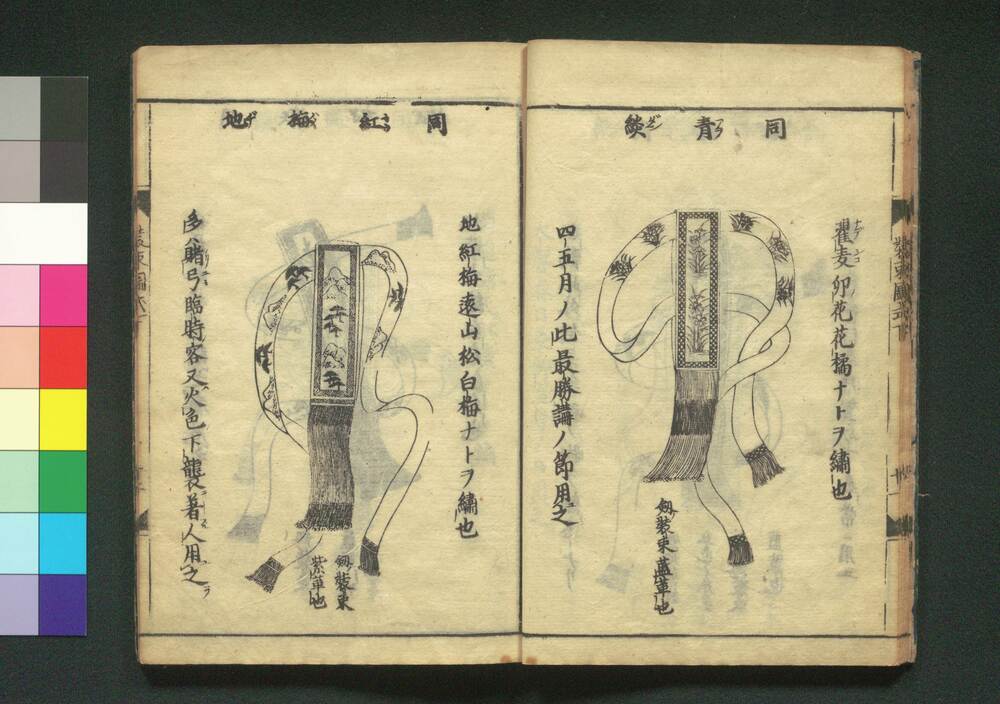 同青緂
瞿麦卯花花橘ナトヲ繡也
四五月ノ此最勝講ノ節用之
劔装束
藍革也
同紅梅地
地紅梅遠山松白梅ナトヲ繡也
劔装束
紫革也
多ハ賭弓臨時客又火色下襲着人用之